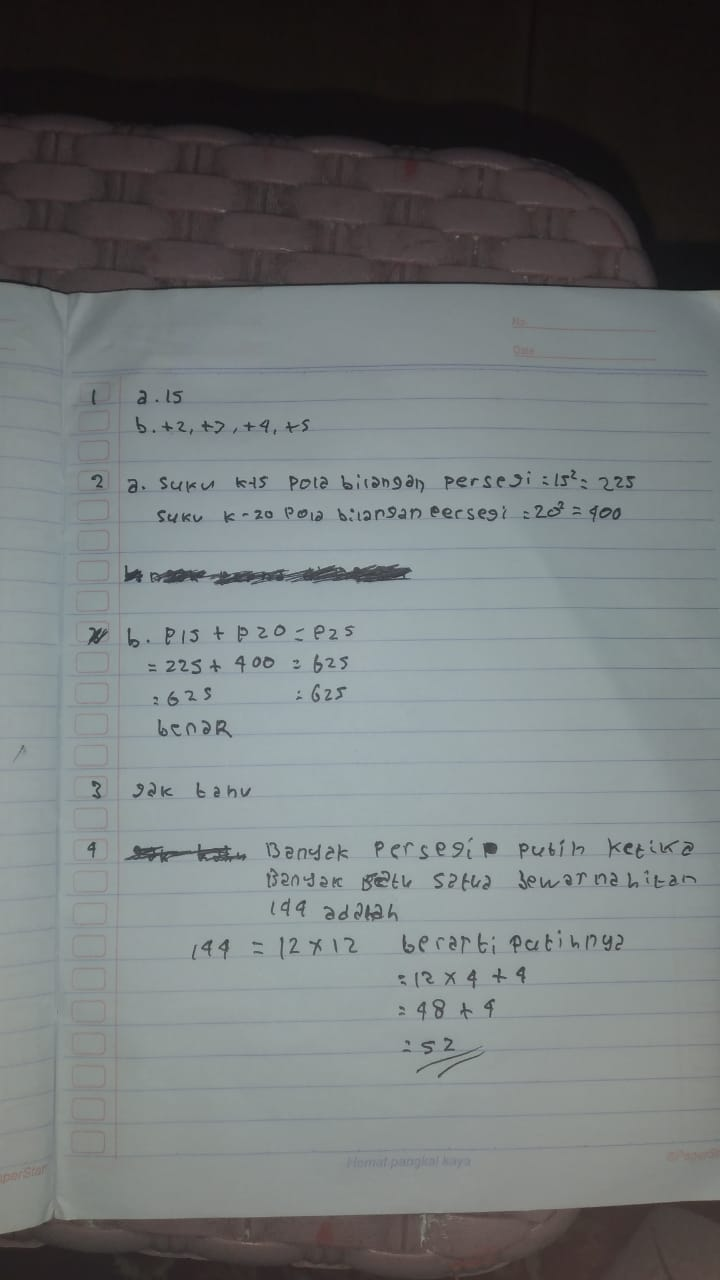 No
Date
1 a. 15
b. +2, +3, +4, +5
2 a. Suku k-15 Pola bilangan persegi = 15² = 225
Suku k-20 Pola bilangan persegi = 20² = 400
b. P15 + P20 = P25
= 225 + 400 = 625
= 625 = 625
benaR
3 gak tahu
4 Banyak Persegi putih ketika
Banyak satua bewarna hitam
144 adalah
144 = 12 x 12 berarti putihnya
= 12 x 4 + 4
= 48 + 4
= 52
Hemat pangkal kaya